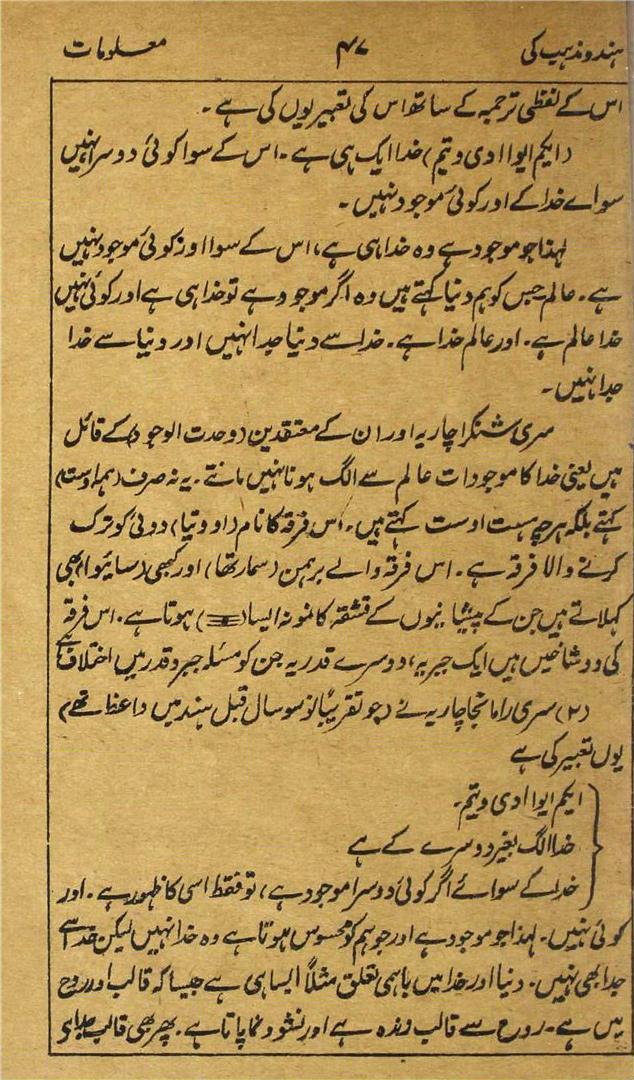 ہندو مذہب کی ۴۷ معلومات
اس کے لفظی ترجمہ کے ساتھ اس کی تعبیر یوں کی ہے۔
(ایکم ایوا ادی ویتم) خدا ایک ہی ہے۔ اس کے سوا کوئی دوسرا نہیں
سواے خدا کے اور کوئی موجود نہیں۔
لہذا جو موجود ہے وہ خدا ہی ہے، اس کے سوا اور کوئی موجود نہیں
ہے۔ عالم جس کو ہم دنیا کہتے ہیں وہ اگر موجود ہے تو خدا ہی ہے اور کوئی نہیں
خدا عالم ہے۔ اور عالم خدا ہے۔ خدا سے دنیا جدا نہیں اور دنیا سے خدا
جدا نہیں۔
سری شنکرا چاریہ اور ان کے معتقدین (وحدت الوجود) کے قائل
ہیں یعنی خدا کا موجودات عالم سے الگ ہونا نہیں مانتے۔ یہ نہ صرف (ہمہ اوست)
کہتے بلکہ ہرچہ ہست اوست کہتے ہیں۔ اس فرقہ کا نام (اوویتا) دوئی کو ترک
کرنے والا فرقہ ہے۔ اس فرقہ والے برہمن (سمارتھا) اور کبھی (سائیوا) بھی
کہلاتے ہیں جن کے پیشانیوں کے قشقہ کا نمونہ ایسا () ہوتا ہے۔ اس فرقہ
کی دو شاخیں ہیں ایک جبریہ، دوسرے قدریہ جن کو مسئلہ جبر و قدر میں اختلاف ہے
(۲) سری رامانجا چاریہ نے (جو تقریباً نو سو سال قبل ہند میں واعظ تھے)
یوں تعبیر کی ہے
ایکم ایوا ادی ویتم۔
خدا الگ بغیر دوسرے کے ہے
خدا کے سوائے اگر کوئی دوسرا موجود ہے، تو فقط اسی کا ظہور ہے۔ اور
کوئی نہیں۔ لہذا جو موجود ہے اور جو ہم کو محسوس ہوتا ہے وہ خدا نہیں لیکن خدا سے
جدا بھی نہیں۔ دنیا اور خدا میں باہمی تعلق مثلاً ایسا ہی ہے جیسا کہ قالب اور روح
میں ہے۔ روح سے قالب زندہ ہے اور نشو و نما پاتا ہے۔ پھر بھی قالب